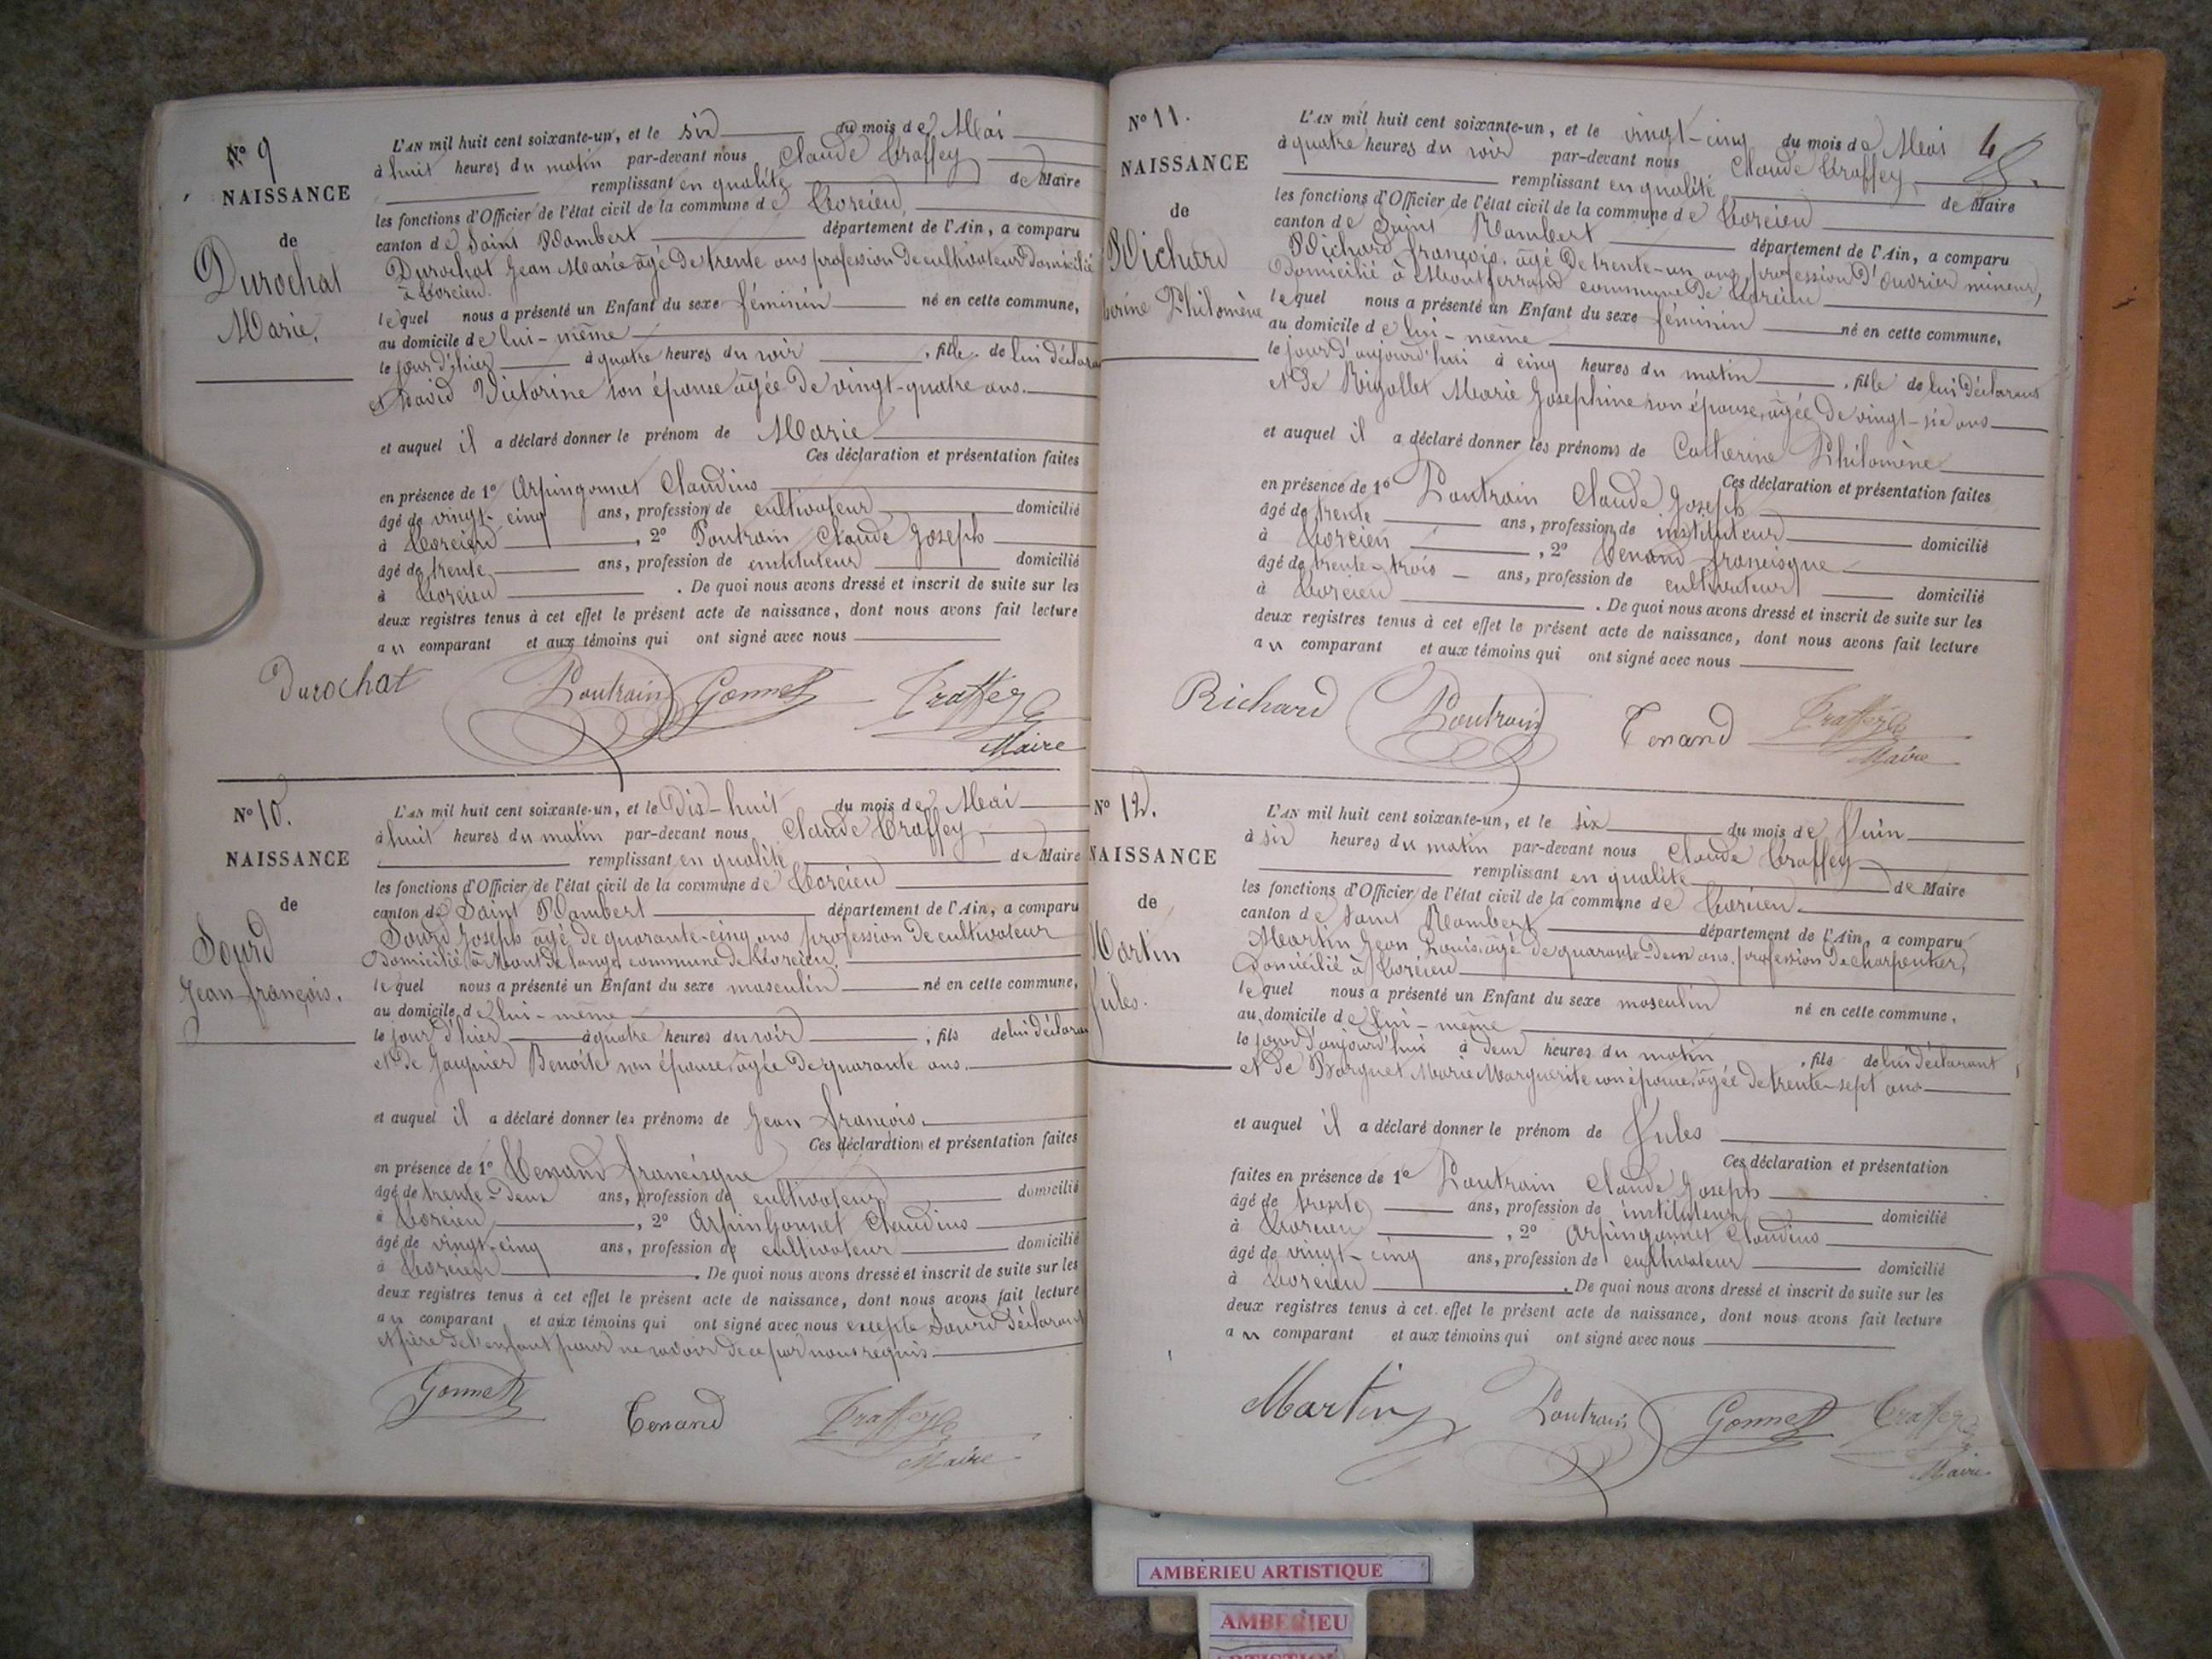 N° 9
NAISSANCE
de
Durochat
Marie.
L'AN mil huit cent soixante-un, et le six du mois de Mai
à huit heures du matin par-devant nous Claude Traffey
remplissant en qualité de Maire
les fonctions d'Officier de l'état civil de la commune de Torcieu
canton de Saint Rambert département de l'Ain, a comparu
Durochat Jean Marie âgé de trente ans profession de cultivateur domicilié
à Torcieu.
lequel nous a présenté un Enfant du sexe féminin né en cette commune,
au domicile de lui-même
le jour d'hier à quatre heures du soir, fille de lui déclarant
et David Victorine son épouse âgée de vingt-quatre ans.
et auquel il a déclaré donner le prénom de Marie
Ces déclaration et présentation faites
en présence de 1° Arpingonnet Claudius
âgé de vingt-cinq ans, profession de cultivateur domicilié
à Torcieu, 2° Poutrain Claude Joseph
âgé de trente ans, profession de instituteur domicilié
à Torcieu. De quoi nous avons dressé et inscrit de suite sur les
deux registres tenus à cet effet le présent acte de naissance, dont nous avons fait lecture
au comparant et aux témoins qui ont signé avec nous
Durochat Poutrain Gonnet Traffey
Maire
N° 10.
NAISSANCE
de
Sourd
Jean françois.
L'AN mil huit cent soixante-un, et le Dix-huit du mois de Mai
à huit heures du matin par-devant nous Claude Traffey
remplissant en qualité de Maire
les fonctions d'Officier de l'état civil de la commune de Torcieu
canton de Saint Rambert département de l'Ain, a comparu
Sourd Joseph âgé de quarante-cinq ans profession de cultivateur
Domicilié à Mont de lange commune de Torcieu.
lequel nous a présenté un Enfant du sexe masculin né en cette commune,
au domicile de lui-même
le jour d'hier à quatre heures du soir, fils de lui déclarant
et de Benoîte son épouse âgée de quarante ans.
et auquel il a déclaré donner les prénoms de Jean françois.
Ces déclaration et présentation faites
en présence de 1° Tenand francisque
âgé de trente-deux ans, profession de cultivateur domicilié
à Torcieu, 2° Arpingonnet Claudius
âgé de vingt-cinq ans, profession de cultivateur domicilié
à Torcieu. De quoi nous avons dressé et inscrit de suite sur les
deux registres tenus à cet effet le présent acte de naissance, dont nous avons fait lecture
au comparant et aux témoins qui ont signé avec nous excepté Sourd déclarant
et père de l'enfant pour ne savoir de ce par nous requis
Gonnet Tenand Traffey
Maire
N° 11.
NAISSANCE
de
Richard
herine Philomène
4
L'AN mil huit cent soixante-un, et le vingt-cinq du mois de Mai
à quatre heures du soir par-devant nous Claude Traffey
remplissant en qualité de Maire
les fonctions d'Officier de l'état civil de la commune de Torcieu
canton de Saint Rambert département de l'Ain, a comparu
Richard françois, âgé de trente-un ans, profession d'ouvrier mineur,
Domicilié à Montferrand commune de Torcieu
lequel nous a présenté un Enfant du sexe féminin né en cette commune,
au domicile de lui-même
le jour d'aujourd'hui à cinq heures du matin, fille de lui déclarant
et de Rigollet Marie Josephine son épouse, âgée de vingt-six ans
et auquel il a déclaré donner les prénoms de Catherine Philomène
Ces déclaration et présentation faites
en présence de 1° Poutrain Claude Joseph
âgé de trente ans, profession de instituteur domicilié
à Torcieu, 2° Tenand francisque
âgé de trente-trois ans, profession de cultivateur domicilié
à Torcieu. De quoi nous avons dressé et inscrit de suite sur les
deux registres tenus à cet effet le présent acte de naissance, dont nous avons fait lecture
au comparant et aux témoins qui ont signé avec nous
Richard Poutrain Tenand Traffey
Maire
N° 12.
NAISSANCE
de
Martin
Jules.
L'AN mil huit cent soixante-un, et le six du mois de Juin
à six heures du matin par-devant nous Claude Traffey
remplissant en qualité de Maire
les fonctions d'Officier de l'état civil de la commune de Torcieu.
canton de Saint Rambert département de l'Ain, a comparu
Martin Jean Louis, âgé de quarante-deux ans, profession de charpentier,
Domicilié à Torcieu
lequel nous a présenté un Enfant du sexe masculin né en cette commune,
au domicile de lui-même
le jour d'aujourd'hui à deux heures du matin, fils de lui déclarant
et de Barquet Marie Marguerite son épouse, âgée de trente-sept ans
et auquel il a déclaré donner le prénom de Jules
Ces déclaration et présentation
faites en présence de 1° Poutrain Claude Joseph
âgé de trente ans, profession de instituteur domicilié
à Torcieu, 2° Arpingonnet Claudius
âgé de vingt-cinq ans, profession de cultivateur domicilié
à Torcieu. De quoi nous avons dressé et inscrit de suite sur les
deux registres tenus à cet effet le présent acte de naissance, dont nous avons fait lecture
au comparant et aux témoins qui ont signé avec nous
Martin Poutrain Gonnet Traffey
Maire
AMBERIEU ARTISTIQUE
AMBERIEU
ARTISTIQUE